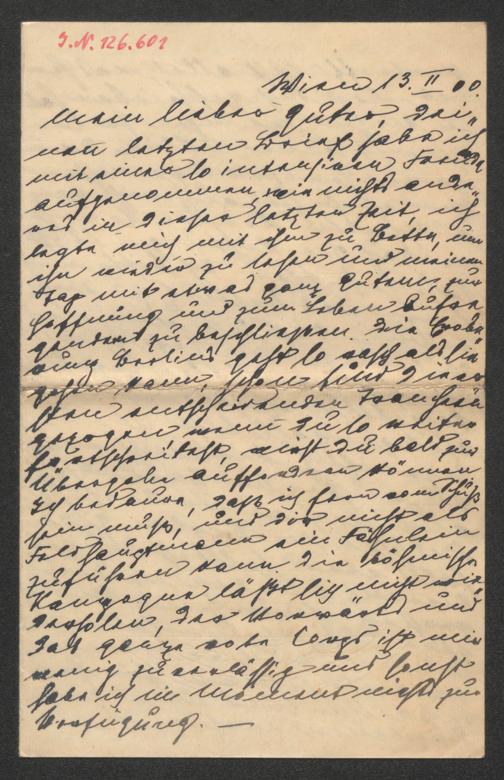 J.N. 126.601
Wien 13. II 00.
Mein lieber guter, dei„
nen letzten Brief habe ich
mit einer so intensiven Freude
aufgenommen, wie nichts ande„
res in dieser letzten Zeit, ich
legte mich mit ihm zu Bette, um
ihn wieder zu lesen und meinen
Tag mit etwas ganz gutem, zur
Hoffnung und zum Leben
zu beschliessen. Die Erobe„
rung Berlins geht so rasch als sie
gehen kann, schon sind die
entscheidenden
gezogen wenn du so weiter
fortschreitest, wirst du bald zur
Übergabe auffordern können
Ich bedaure, daß ich fern vom Schuß
sein muß, und dir nicht als
Feldhauptmann ein Fähnlein
zuführen kann. Die böhmische
Campagne läßt sich nicht wie„
derholen, der Vorwärts und
das ganze rothe Corps ist mir
wenig zuverlässig und sonst
habe ich im Moment nichts zur
Verfügung. —